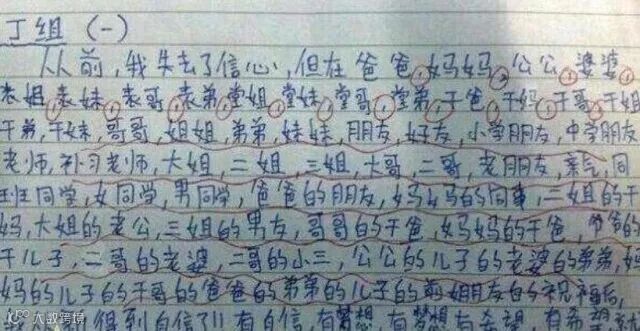 丁组（一）
从前，我失去了信心，但在爸爸，妈妈，公公，婆婆，
表姐，表妹，表哥，表弟，堂姐，堂妹，堂哥，堂弟，干爸，干妈，干哥，干姐
干弟，干妹，哥哥，姐姐，弟弟，妹妹，朋友，好友，小学朋友，中学朋友
老师，补习老师，大姐，二姐，三姐，大哥，二哥，老朋友，亲人，同
班同学，女同学，男同学，爸爸的朋友，妈妈的同事，二姐的干
妈，大姐的老公，三姐的男友，哥哥的干爸，妈妈的干爸，爷爷的
干儿子，二哥的老婆，二哥的小三，公公的儿子的老婆的弟弟，妈
妈的儿子的干哥的爸爸的弟弟的儿子的前姐朋友的祝福后，
得到自信了！！有自信，有梦想，有梦想
大数跨境